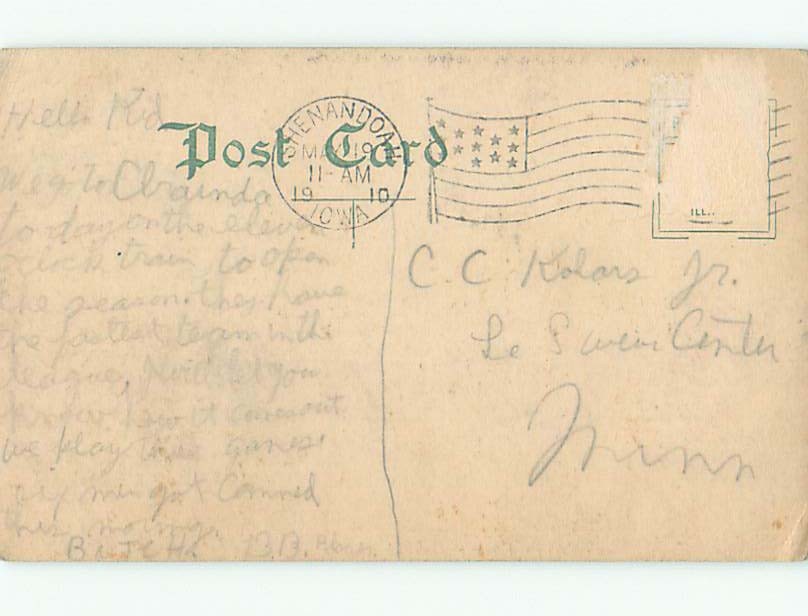 Post Card
SHENANDOAH
MAY 19
11-AM
19 10
IOWA
Hello Kid
We go to Clarinda
today on the eleven
o'clock train, to open
the season. they have
the fastest team in the
league, I will let you
know how it comes out
we play three games.
six men got canned
this morning.
BUTCH B.B.
C. C. Kolars Jr.
Le Sueur Center
Minn